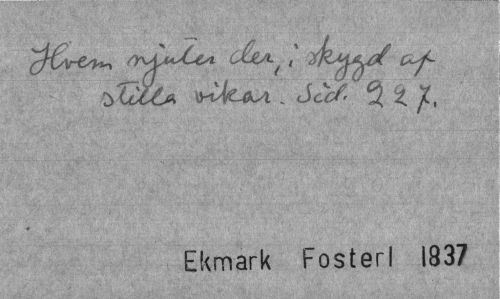 Hvem njuter der, i skygd af
stilla vikar. Sid. 227.
Ekmark Fosterl 1837